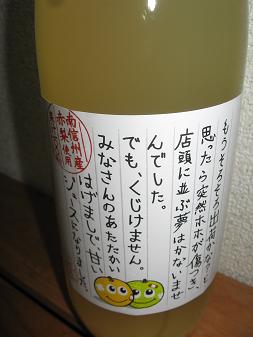 もうそろそろ出荷かな?と
思ったら突然ホホが傷つき、
店頭に並ぶ夢はかないませ
んでした。
でも、くじけません。
みなさんのあたたかい
はげましで、甘い
ジュースになりました。
南信州産
赤梨使用